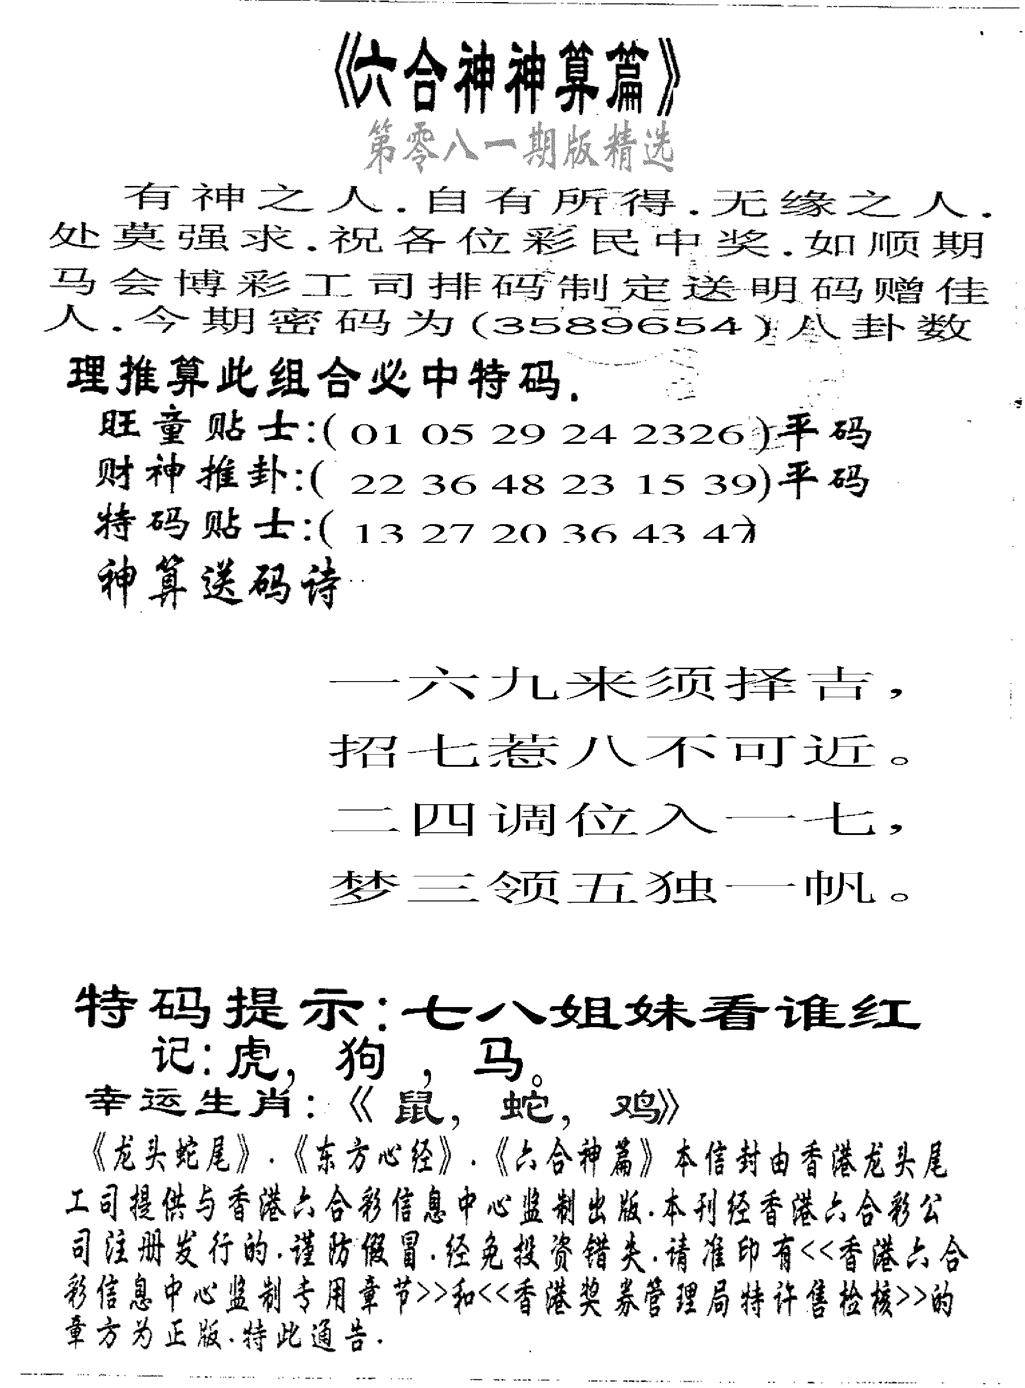 《六合神神算篇》
第零八一期版精选
有神之人.自有所得.无缘之人.
处莫强求.祝各位彩民中奖.如顺期
马会博彩工司排码制定送明码赠佳
人.今期密码为(3589654)八卦数
理推算此组合必中特码.
旺童贴士:( 01 05 29 24 2326 )平码
财神推卦:( 22 36 48 23 15 39)平码
特码贴士:( 13 27 20 36 43 47)
神算送码诗
一六九来须择吉，
招七惹八不可近。
二四调位入一七，
梦三领五独一帆。
特码提示:七八姐妹看谁红
记:虎，狗，马。
幸运生肖:《鼠，蛇，鸡》
《龙头蛇尾》.《东方心经》.《六合神篇》本信封由香港龙头尾
工司提供与香港六合彩信息中心监制出版.本刊经香港六合彩公
司注册发行的.谨防假冒.经免投资错失.请准印有<<香港六合
彩信息中心监制专用章节>>和<<香港奖券管理局特许售检核>>的
章方为正版.特此通告.